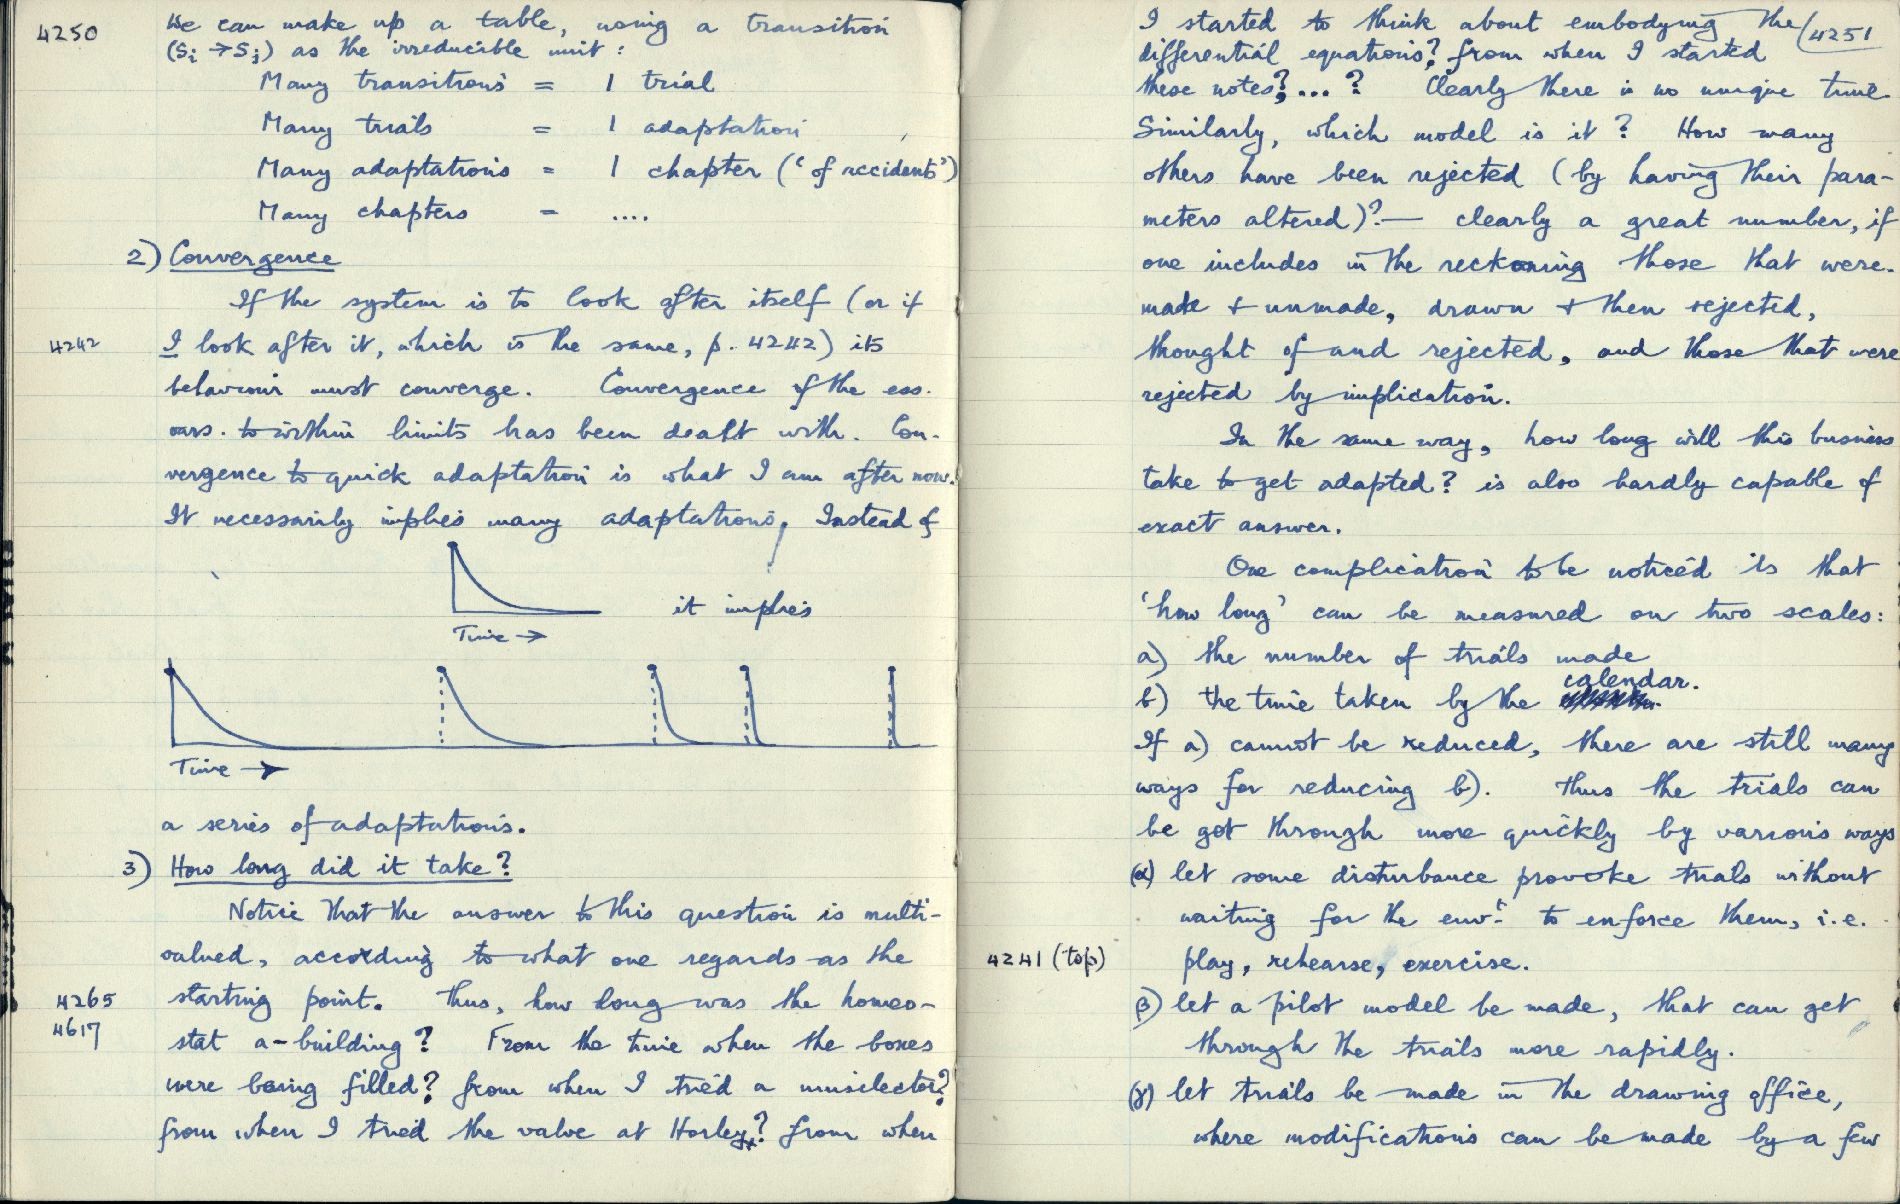 4250
We can make up a table, using a transition
(Si → Sj) as the irreducible unit:
Many transitions = 1 trial
Many trials = 1 adaptation
Many adaptations = 1 chapter ('of accidents')
Many chapters = ....
2) Convergence
If the system is to look after itself (or if
4242
I look after it, which is the same, p. 4242) its
behaviour must converge. Convergence of the ess.
vars. to within limits has been dealt with. Con-
vergence to quick adaptation is what I am after now.
It necessarily implies many adaptations. Instead of
Time →
it implies
Time →
a series of adaptations.
3) How long did it take?
Notice that the answer to this question is multi-
valued, according to what one regards as the
4265
starting point. Thus, how long was the homeo-
4617
stat a-building? From the time when the boxes
were being filled? from when I tried a uniselector?
from when I tried the valve at Horley? from when
4251
I started to think about embodying the
differential equations? from when I started
these notes?, ... ? Clearly there is no unique time.
Similarly, which model is it? How many
others have been rejected (by having their para-
meters altered)? — clearly a great number, if
one includes in the reckoning those that were
made + unmade, drawn + then rejected,
thought of and rejected, and those that were
rejected by implication.
In the same way, how long will this business
take to get adapted? is also hardly capable of
exact answer.
One complication to be noticed is that
'how long' can be measured on two scales:
a) the number of trials made
b) the time taken by the calendar.
If a) cannot be reduced, there are still many
ways for reducing b). Thus the trials can
be got through more quickly by various ways
(α) let some disturbance provoke trials without
waiting for the envt. to enforce them, i.e.
4241 (top)
play, rehearse, exercise.
(β) let a pilot model be made, that can get
through the trials more rapidly.
(γ) let trials be made in the drawing office,
where modifications can be made by a few